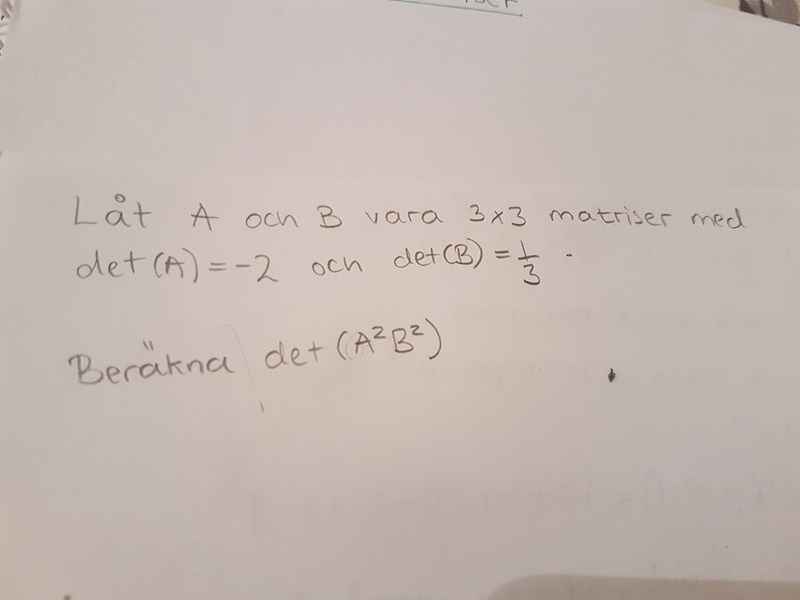 Låt A och B vara 3x3 matriser med
det(A) = -2 och det(B) = 1/3 .
Beräkna det (A²B²)